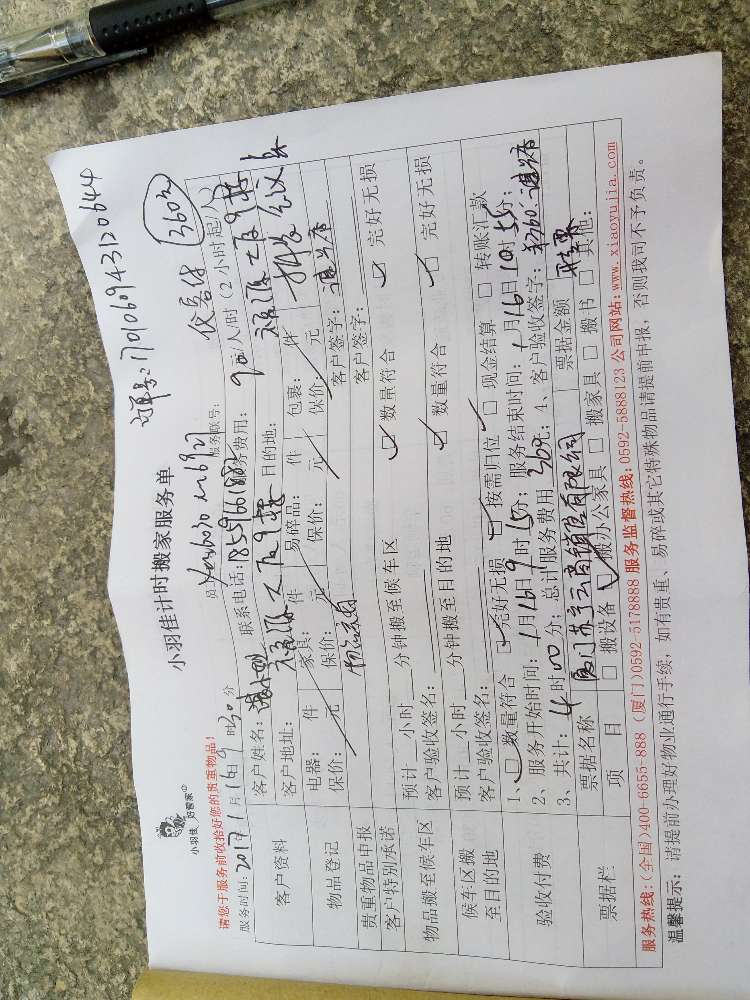 订单号:170106943120644
小羽佳
好管家
小羽佳计时搬家服务单
360元
请您于服务前收拾好您的贵重物品!
服务时间:2017年1月16日9时30分
服务联号:
客户资料
客户姓名:
联系电话:
服务费用:90元/人/时(2小时起/人)
客户地址:
目的地:
物品登记
电器: 件 家具: 件 易碎品: 件 包裹: 件
保价: 元 保价: 元 保价: 元 保价: 元
贵重物品申报
客户签字:
客户特别承诺
客户签字:
物品搬至候车区
预计 小时 分钟搬至候车区
数量符合 完好无损
客户验收签名:
候车区搬至目的地
预计 小时 分钟搬至目的地
数量符合 完好无损
客户验收签名:
验收付费
1、□数量符合 □完好无损 □按需归位 □现金结算 □转账汇款
2、服务开始时间:1月16日9时15分;服务结束时间:1月16日10时55分;
3、共计:4时00分;总计服务费用360元;4、客户验收签字:
票据栏
票据名称 厦门苏宁云商销售有限公司 票据金额
项目 □搬设备 □搬办公家具 □搬家具 □搬书 □其他:
服务热线:(全国)400-6655-888 (厦门)0592-5178888 服务监督热线:0592-5888123 公司网站:www.xiaoyujia.com
温馨提示:请提前办理好物业通行手续,如有贵重、易碎或其它特殊物品请提前申报,否则我司不予负责。